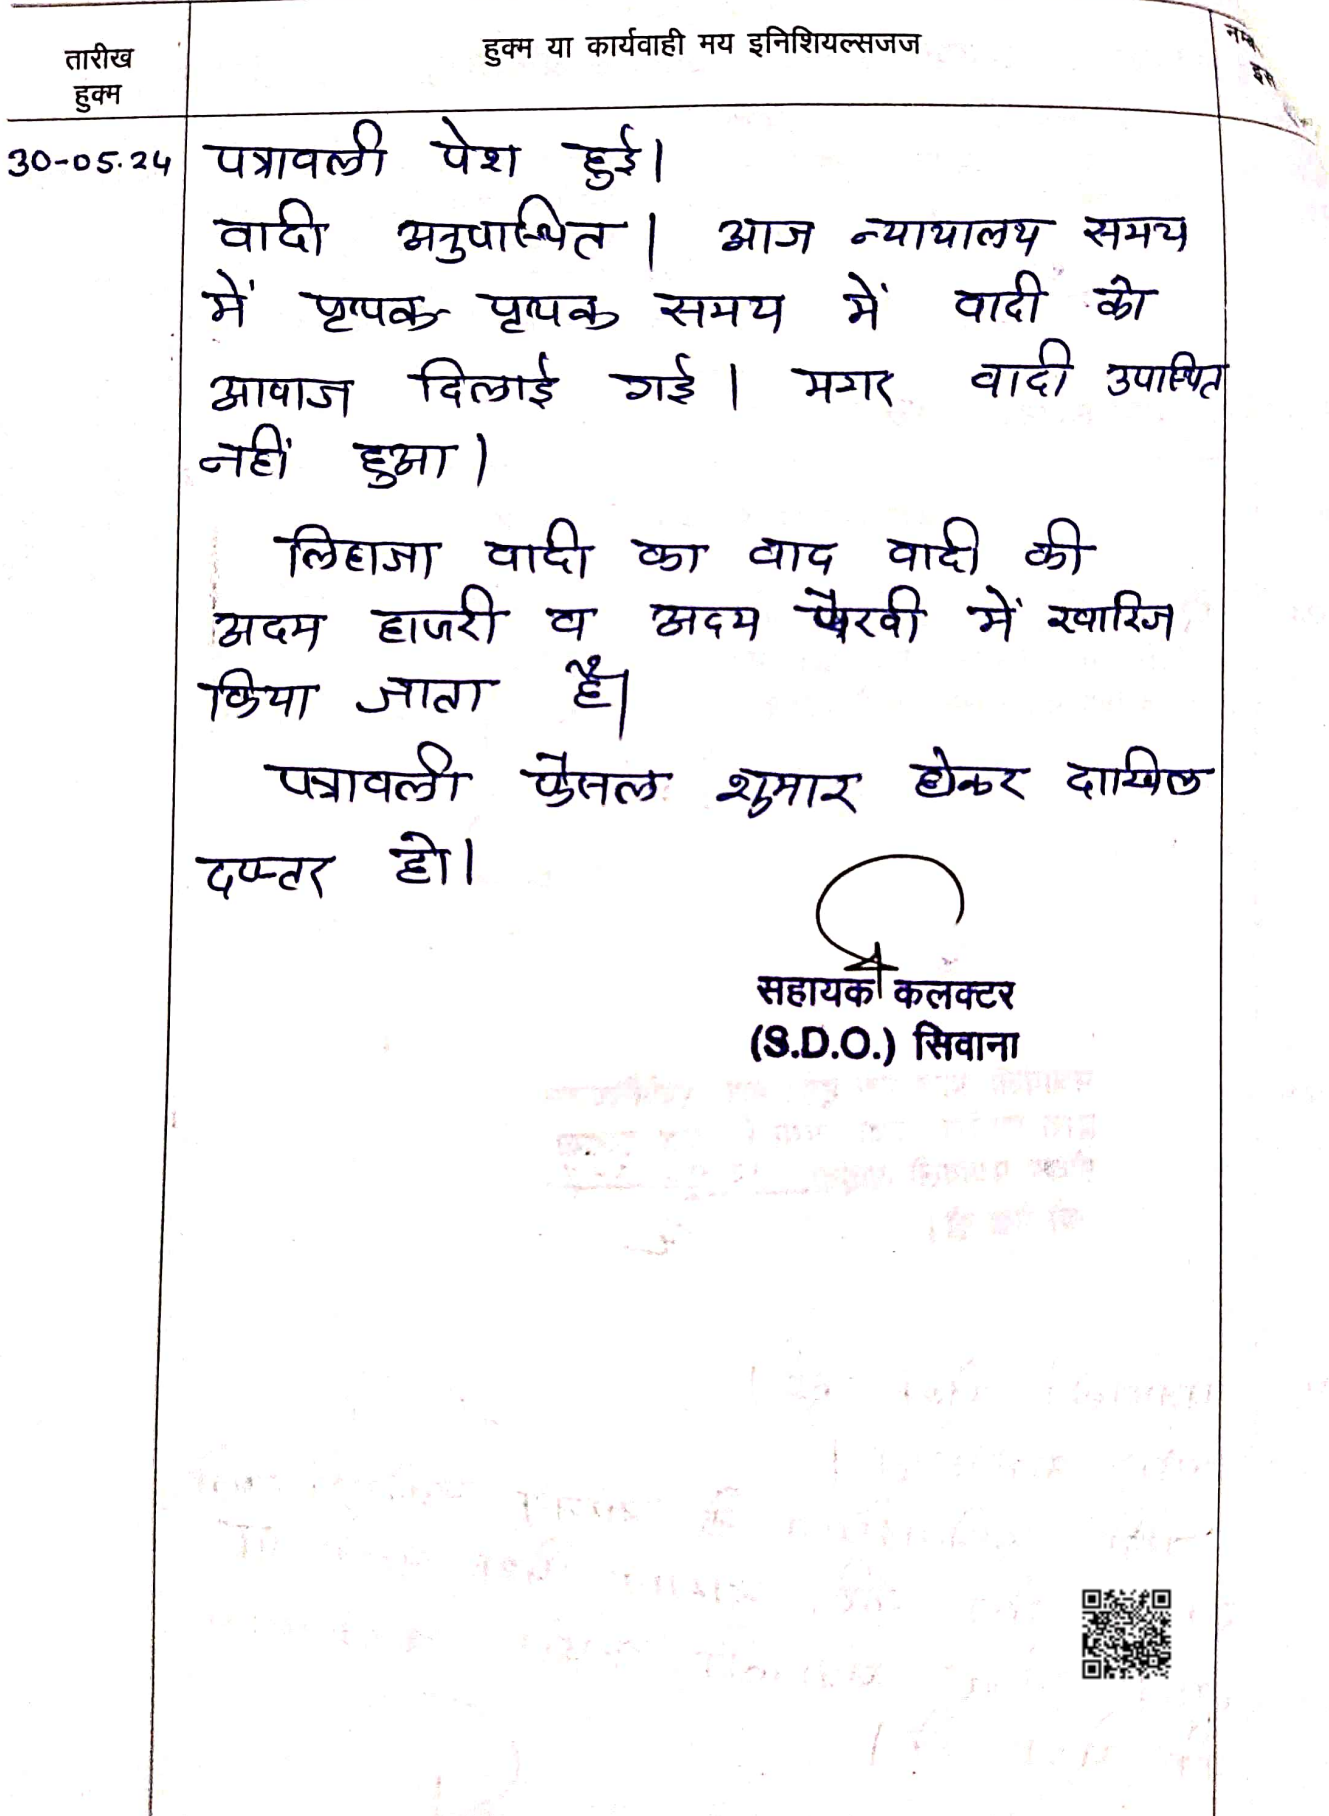 तारीख
हुक्म
हुक्म या कार्यवाही मय इनिशियल्सजज
30-05.24
पत्रावली पेश हुई।
वादी अनुपास्थित। आज न्यायालय समय
में पृथक पृथक समय में वादी को
आवाज दिलाई गई। मगर वादी उपास्थित
नहीं हुआ।
लिहाजा वादी का वाद वादी की
अदम हाजरी व अदम पैरवी में खारिज
किया जाता है।
पत्रावली फैसल शुमार होकर दाखिल
दफ्तर हो।
सहायक कलक्टर
(S.D.O.) सिवाना